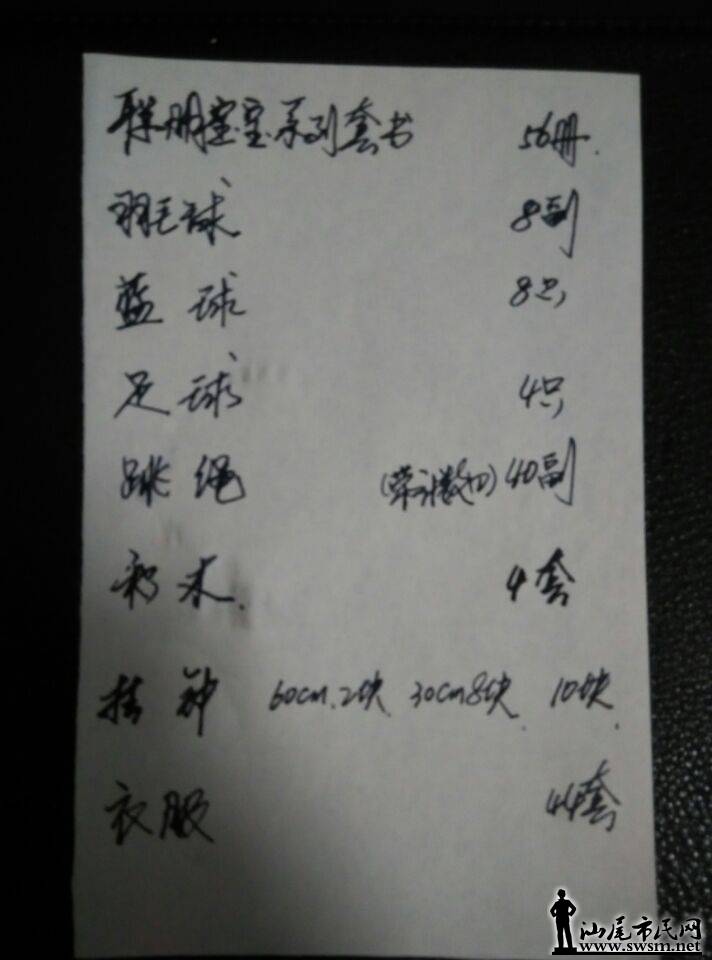 聪明宝宝系列套书 56册.
羽毛球 8副
蓝球 8只
足球 4只
跳绳 40副
积木. 4套
挂钟 60cm.2块 30cm8块 10块.
衣服 44套
汕尾市民网
www.swsm.net